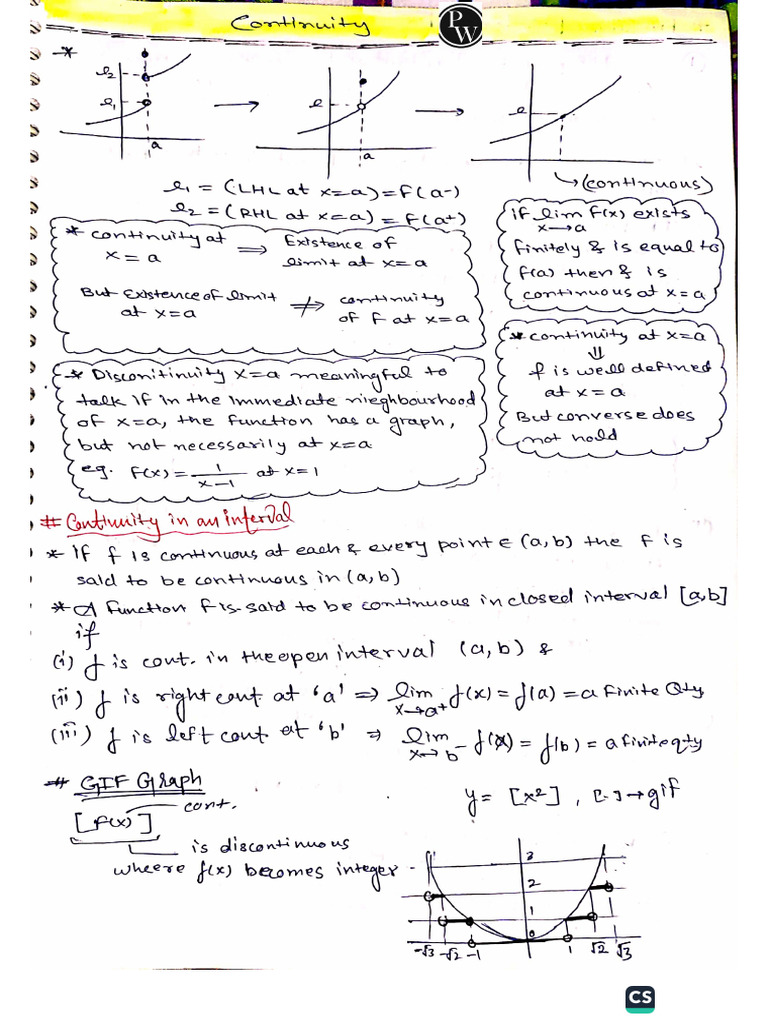 Continuity
P
W
*
l2
l1
a
l
a
l
→ (continuous)
l1 = (LHL at x=a) = f(a-)
l2 = (RHL at x=a) = f(a+)
* continuity at x = a ⇒ Existence of limit at x=a
But Existence of limit at x=a ⇏ continuity of f at x=a
if lim f(x) exists
x→a
finitely & is equal to
f(a) then f is
continuous at x=a
* continuity at x=a
⇓
f is well defined
at x=a
But converse does
not hold
* Disconitinuity x=a meaningful to
talk if in the immediate nieghbourhood
of x=a, the function has a graph,
but not necessarily at x=a
eg. f(x) = 1/(x-1) at x=1
# Continuity in an interval
* If f is continuous at each & every point ∈ (a,b) the f is
said to be continuous in (a,b)
* A function f is said to be continuous in closed interval [a,b]
if
(i) f is cont. in the open interval (a,b) &
(ii) f is right cont at 'a' ⇒ lim x→a+ f(x) = f(a) = a finite Qty
(iii) f is left cont at 'b' ⇒ lim x→b- f(x) = f(b) = a finite qty
# GIF Graph
[f(x)] cont.
y = [x²], [.] → gif
is discontinuous
wheere f(x) becomes integer
3
2
1
0
-√3 -√2 -1 1 √2 √3
CS